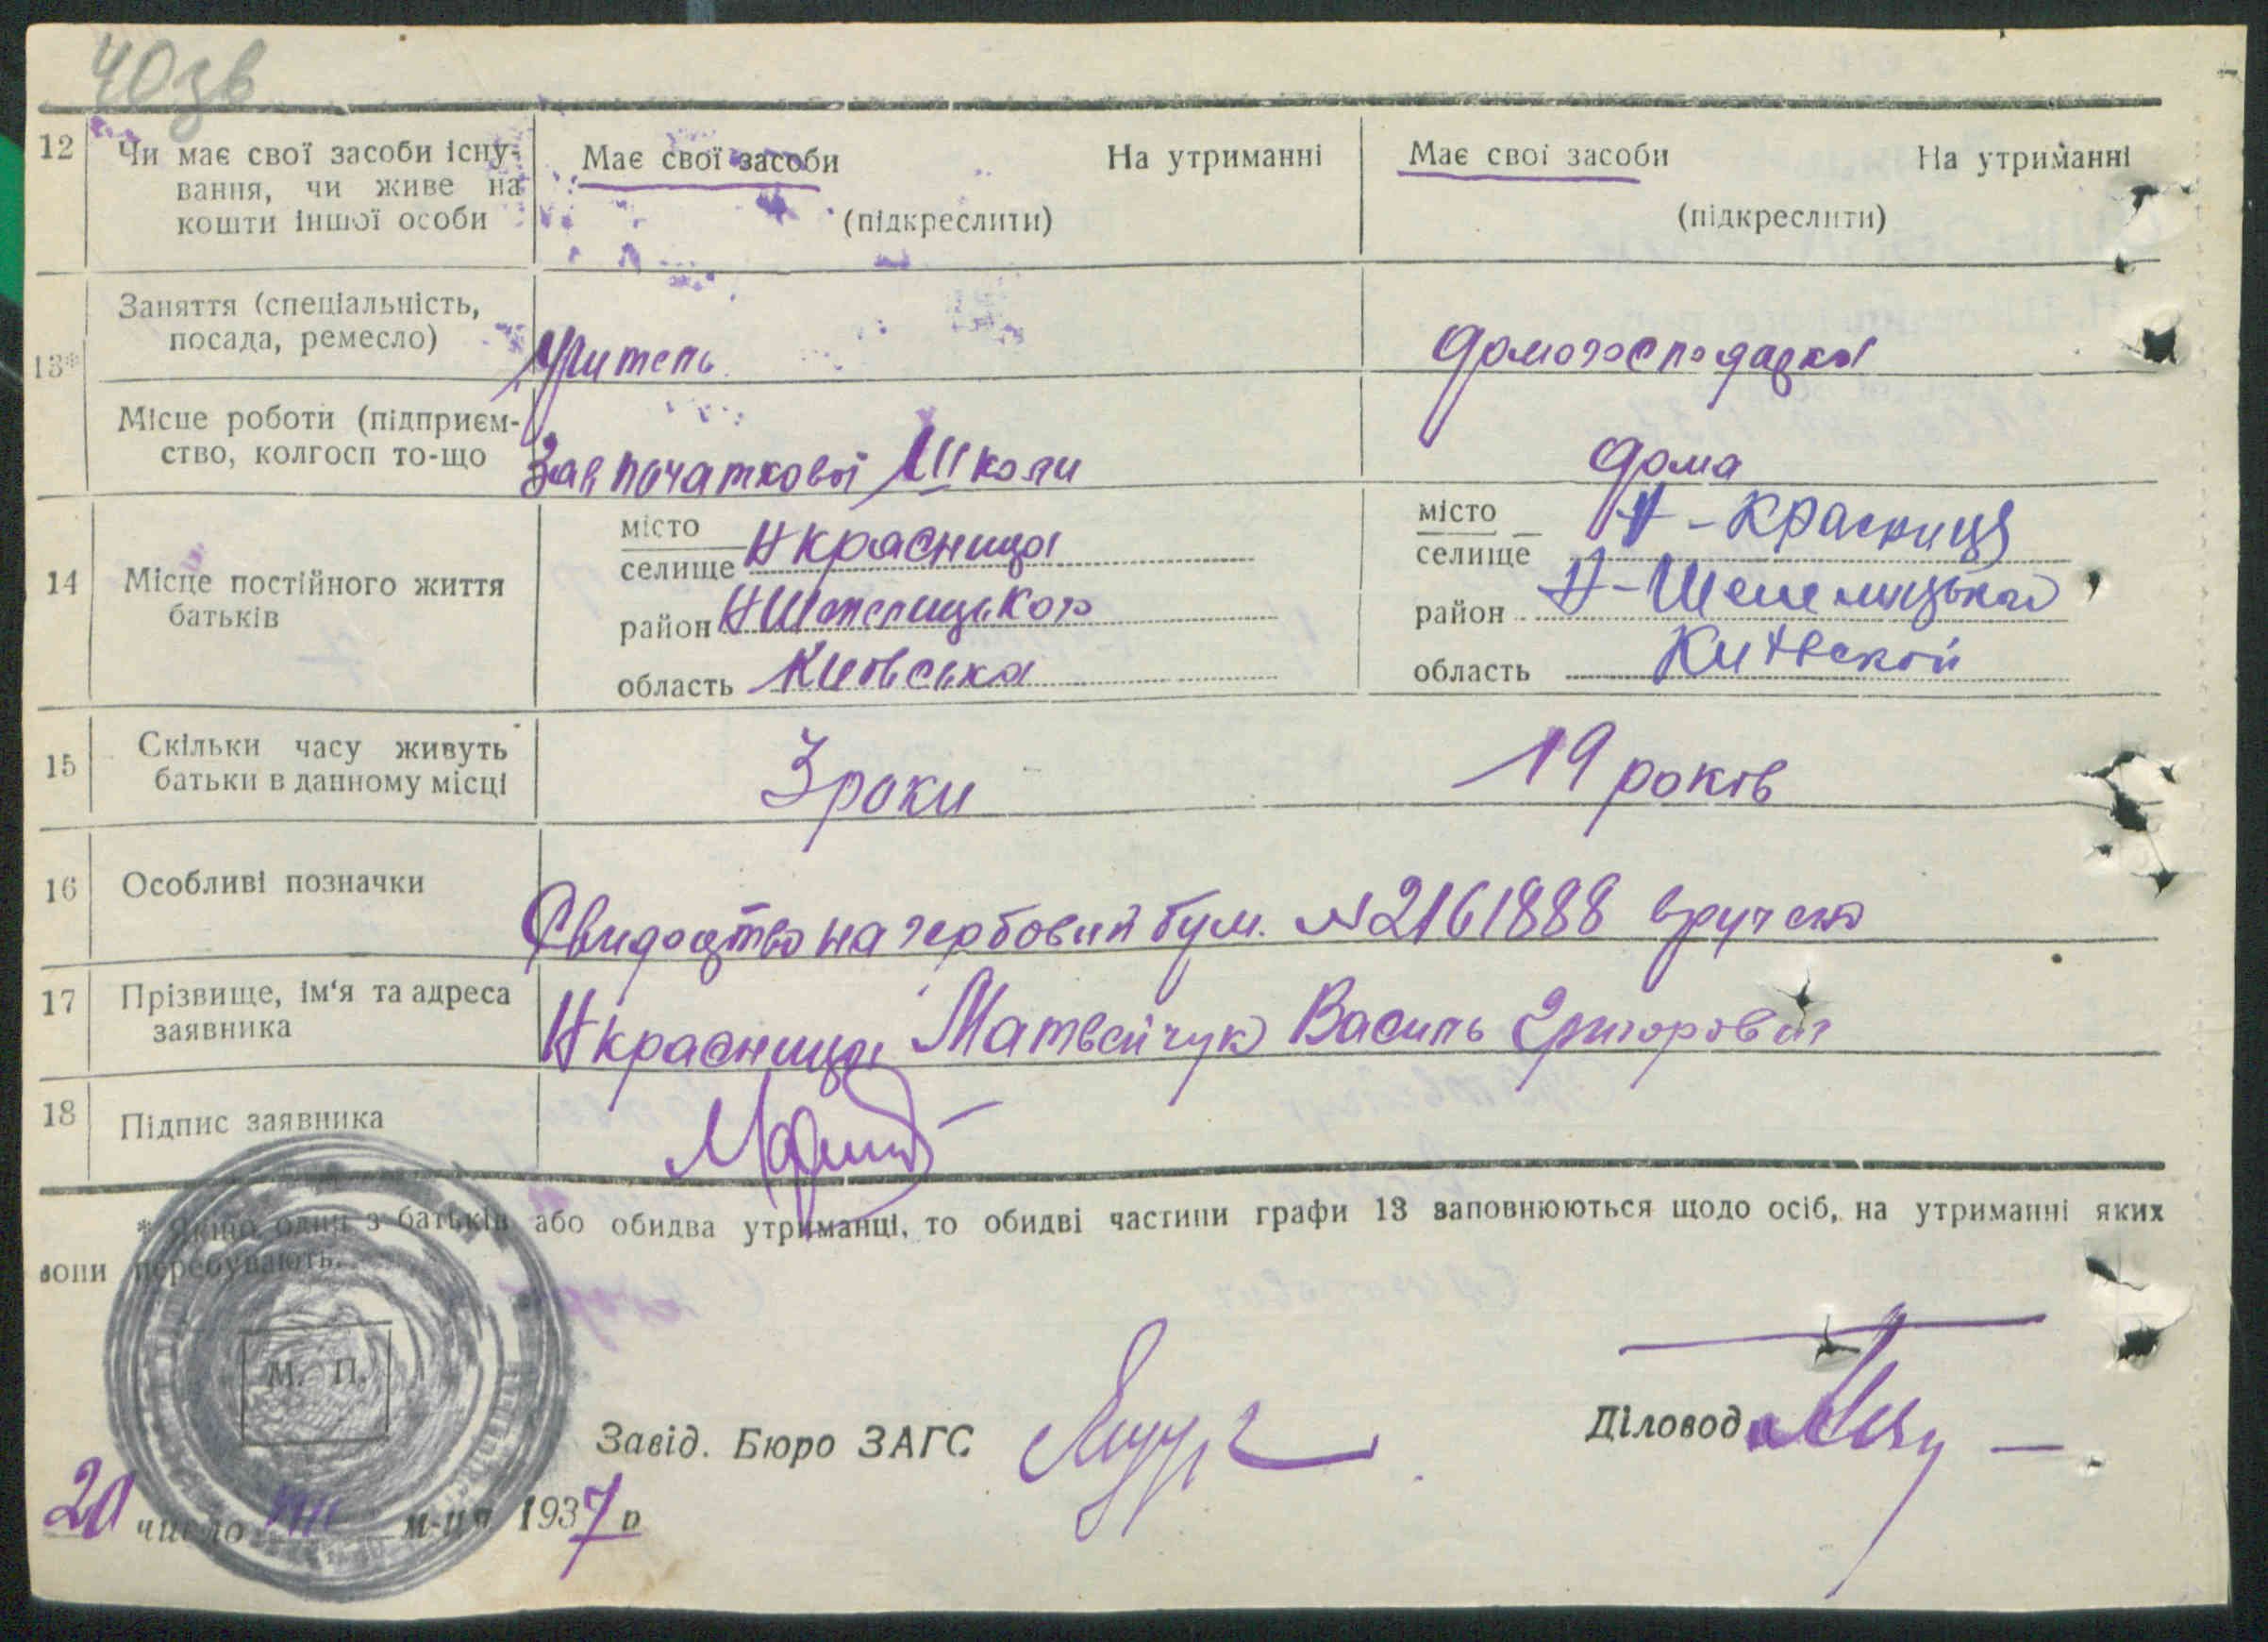 40зв
12 Чи має свої засоби існу-
вання, чи живе на
кошти іншої особи
Має свої засоби На утриманні
(підкреслити)
Має свої засоби На утриманні
(підкреслити)
13*
Заняття (спеціальність,
посада, ремесло)
Учитель
домогосподарка
Місце роботи (підприєм-
ство, колгосп то-що
Зав початкової Школи
дома
14 Місце постійного життя
батьків
місто
селище Н Красница
район Н Шепелицького
область Київська
місто
селище Н-Красниця
район Н-Шепелицька
область Київской
15 Скільки часу живуть
батьки в данному місці
3 роки
19 років
16 Особливі позначки
Свидоцтво на гербовий бум. №2161888 вручено
17 Прізвище, ім'я та адреса
заявника
Н Красница Матвейчук Василь Григорович
18 Підпис заявника
* Якщо один з батьків або обидва утриманці, то обидві частини графи 13 заповнюються щодо осіб, на утриманні яких
вони перебувають.
М. П.
Завід. Бюро ЗАГС
Діловод
20 число VIII м-ця 1937 р